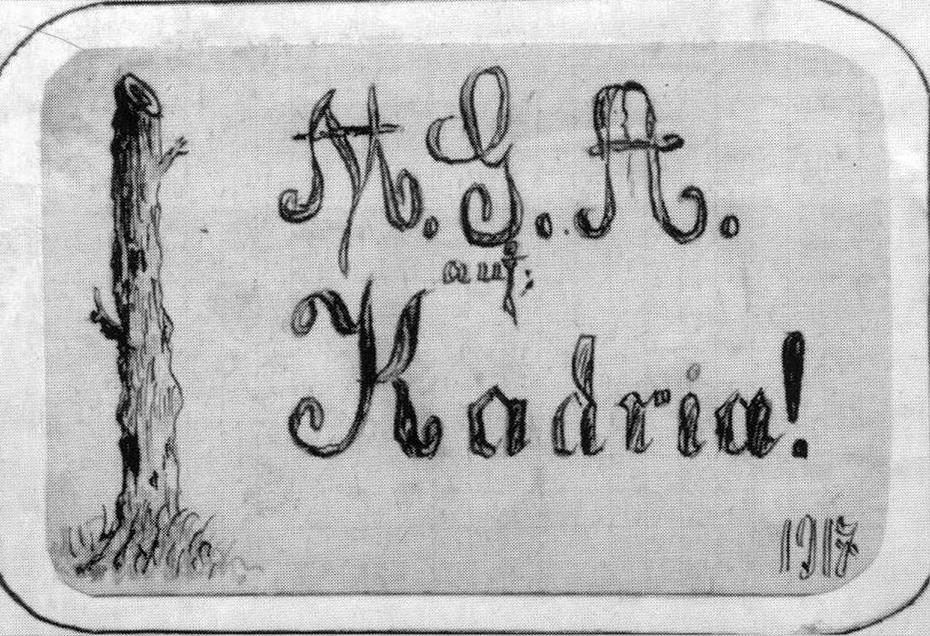 G. A.
auf;
Kadria!
1917